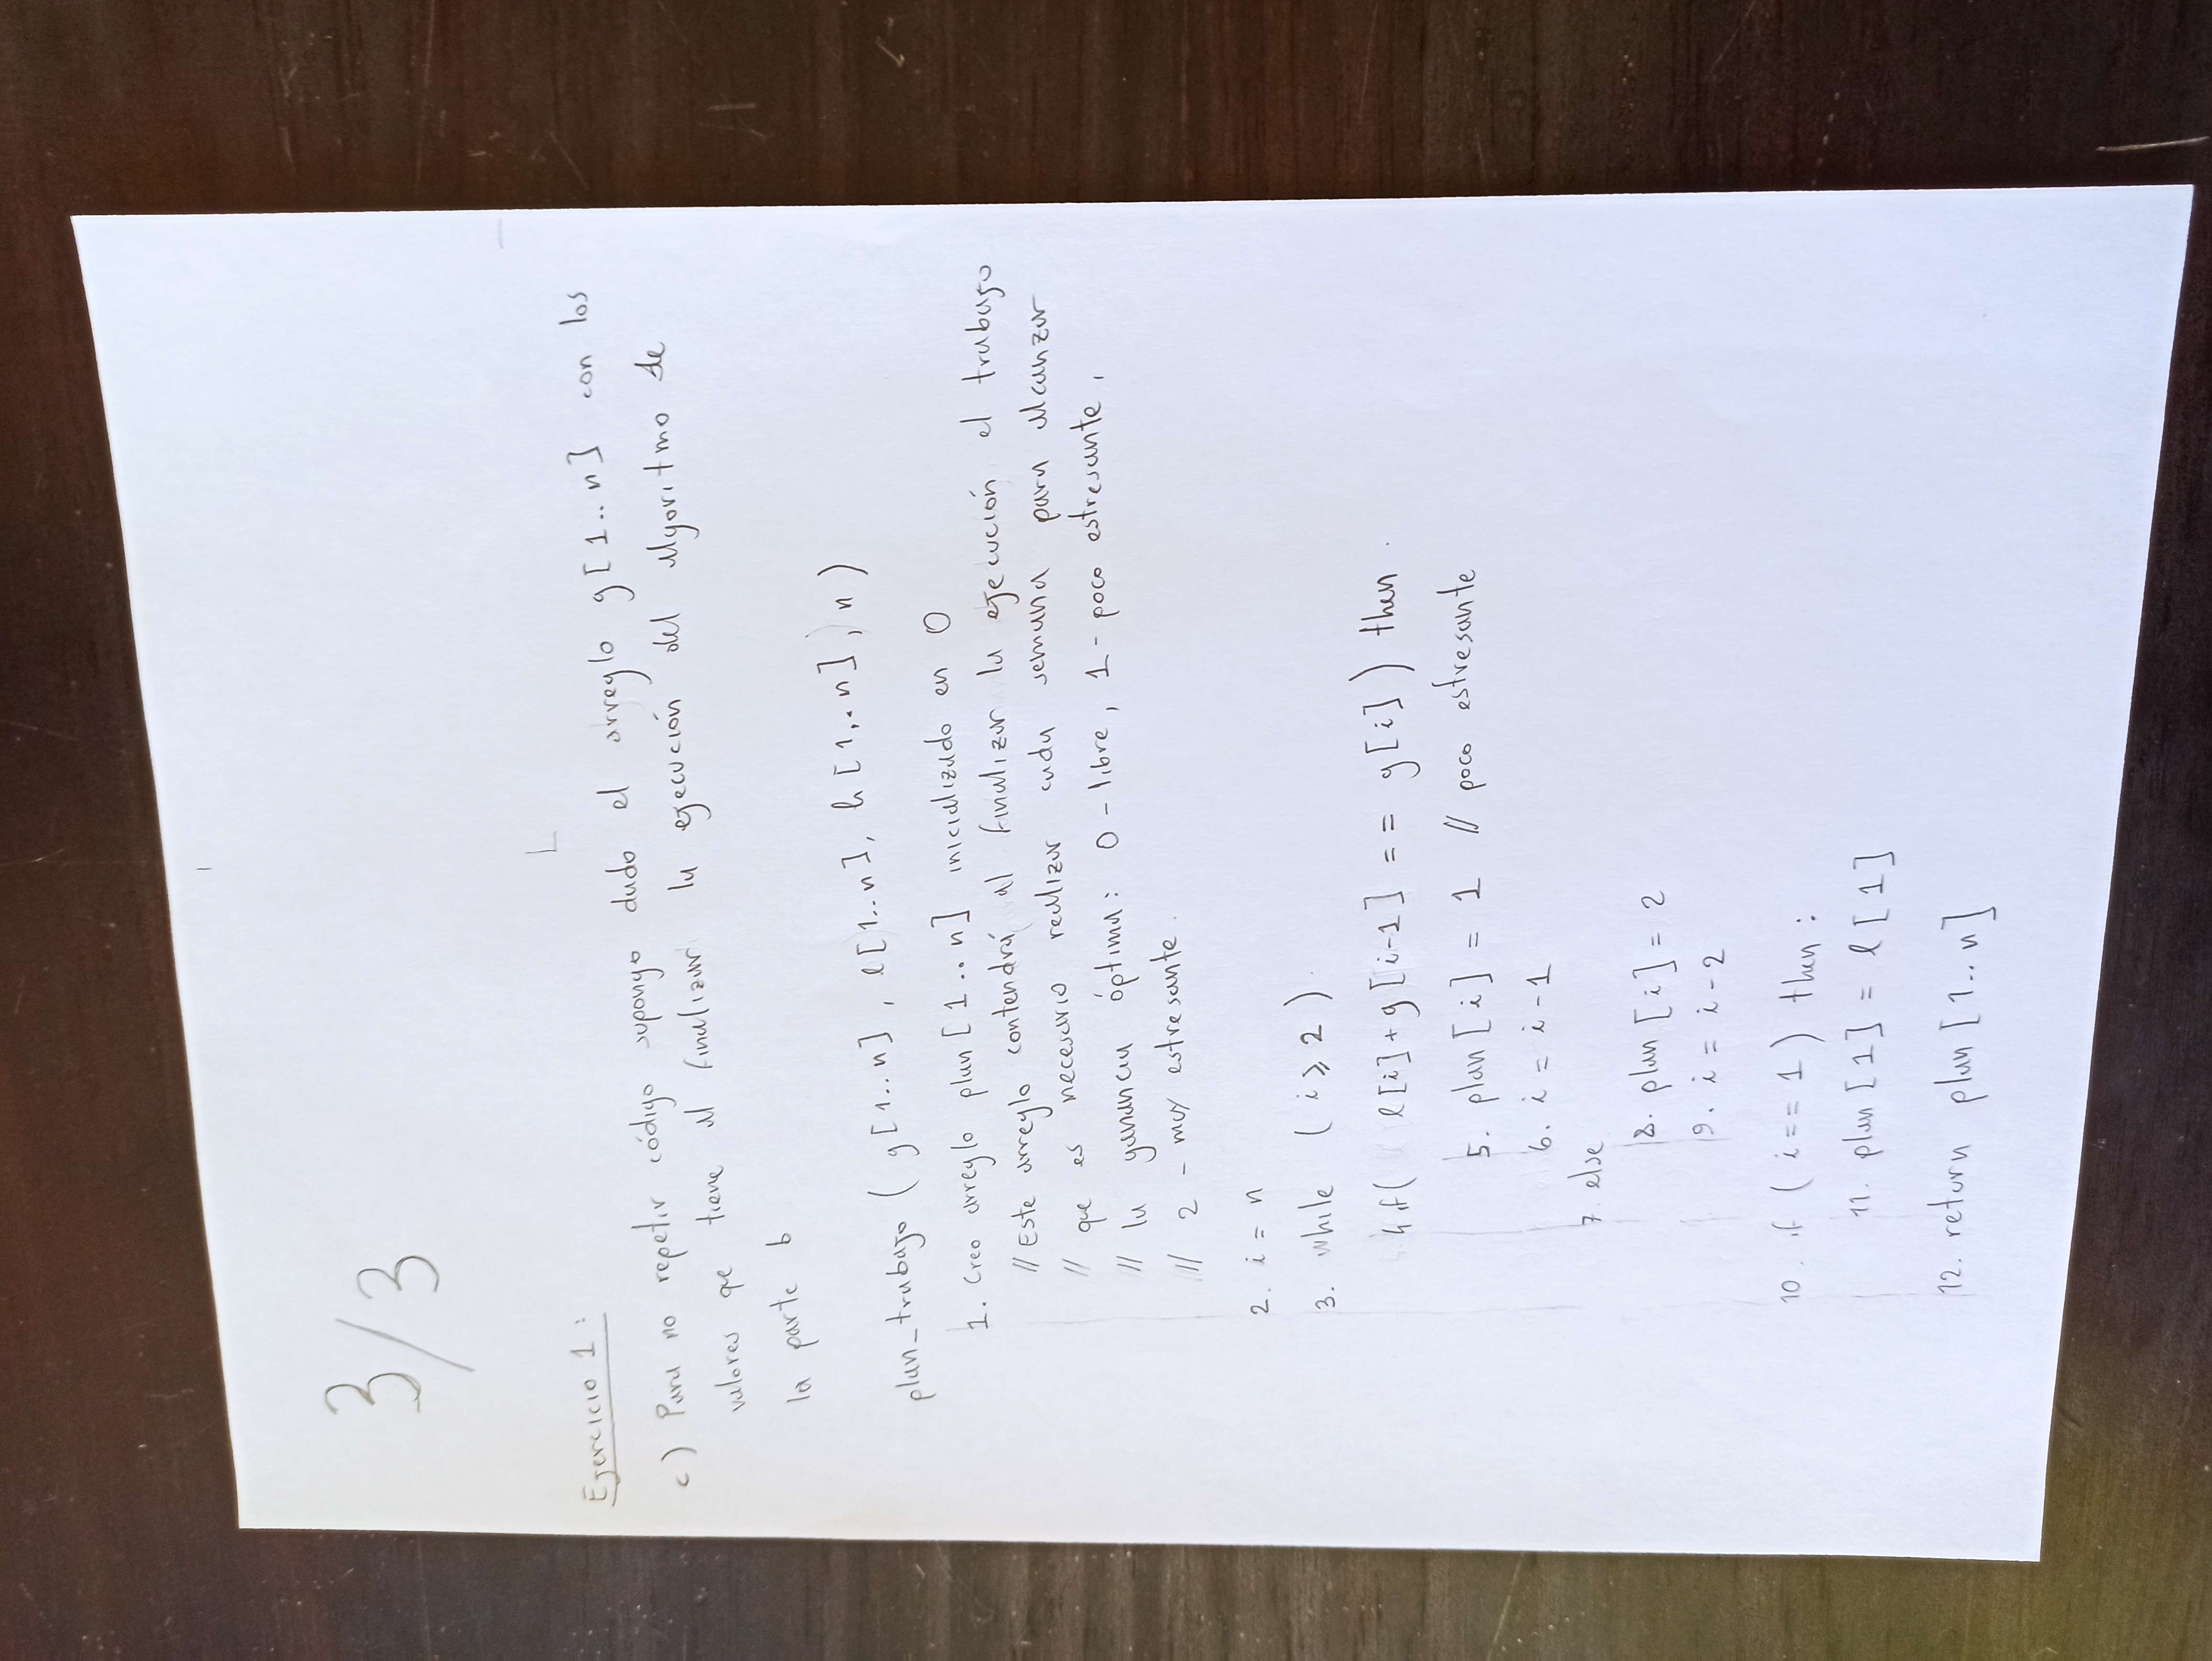 3/3
Ejercicio 1:
c) Para no repetir código supongo dado el arreglo g[1..n] con los
valores que tiene al finalizar la ejecución del algoritmo de
la parte b
plan_trabajo (g[1..n], l[1..n], h[1..n], n)
1. Creo arreglo plan[1..n] inicializado en 0
// Este arreglo contendrá al finalizar la ejecución el trabajo
// que es necesario realizar cada semana para alcanzar
// la ganancia óptima: 0-libre, 1-poco estresante,
// 2-muy estresante.
2. i = n
3. while (i ⩾ 2)
4. if( l[i]+g[i-1] == g[i]) then
5. plan[i] = 1 // poco estresante
6. i = i-1
7. else
8. plan[i] = 2
9. i = i-2
10. if (i == 1) then:
11. plan[1] = l[1]
12. return plan[1..n]